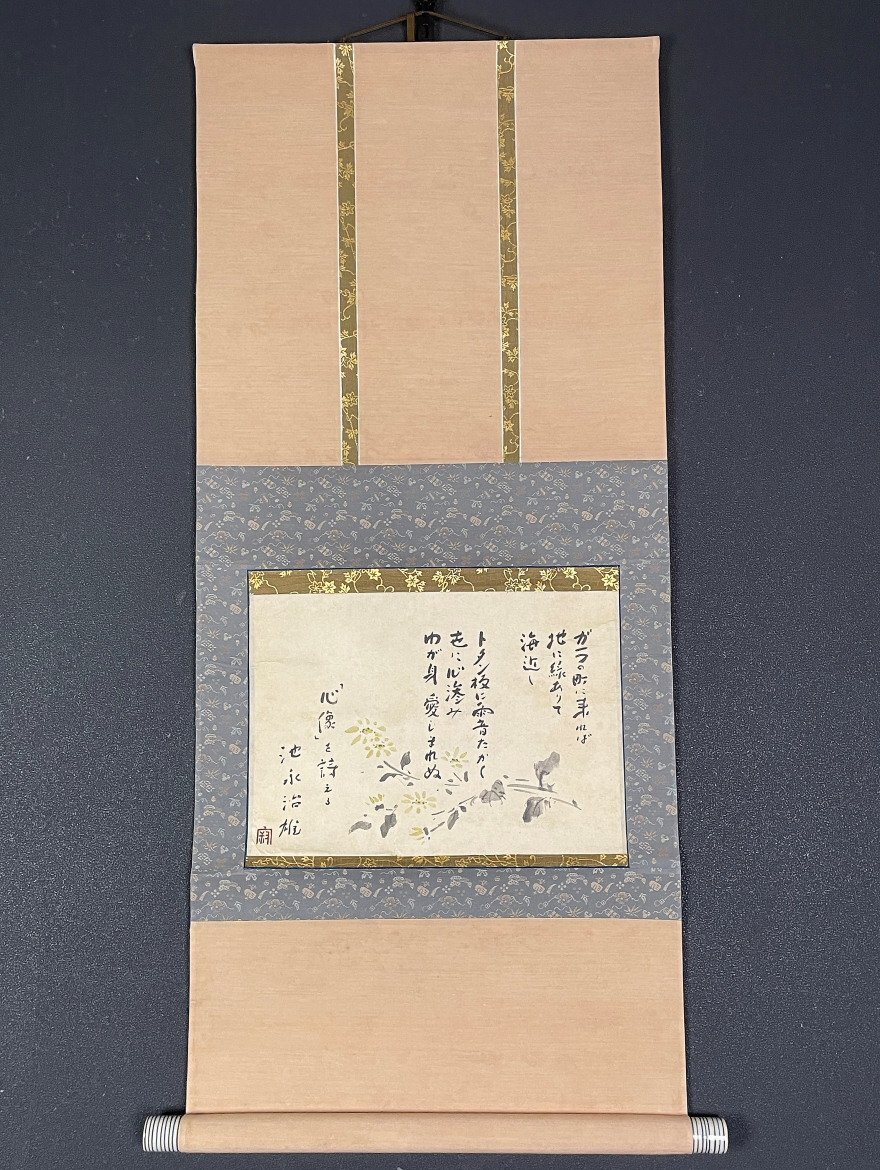 町に来れば
地に緑ありて
海近し
トタン板に雨音たかく
心滲み
わが身愛しまれぬ
「心像」を詩える
池永治雄